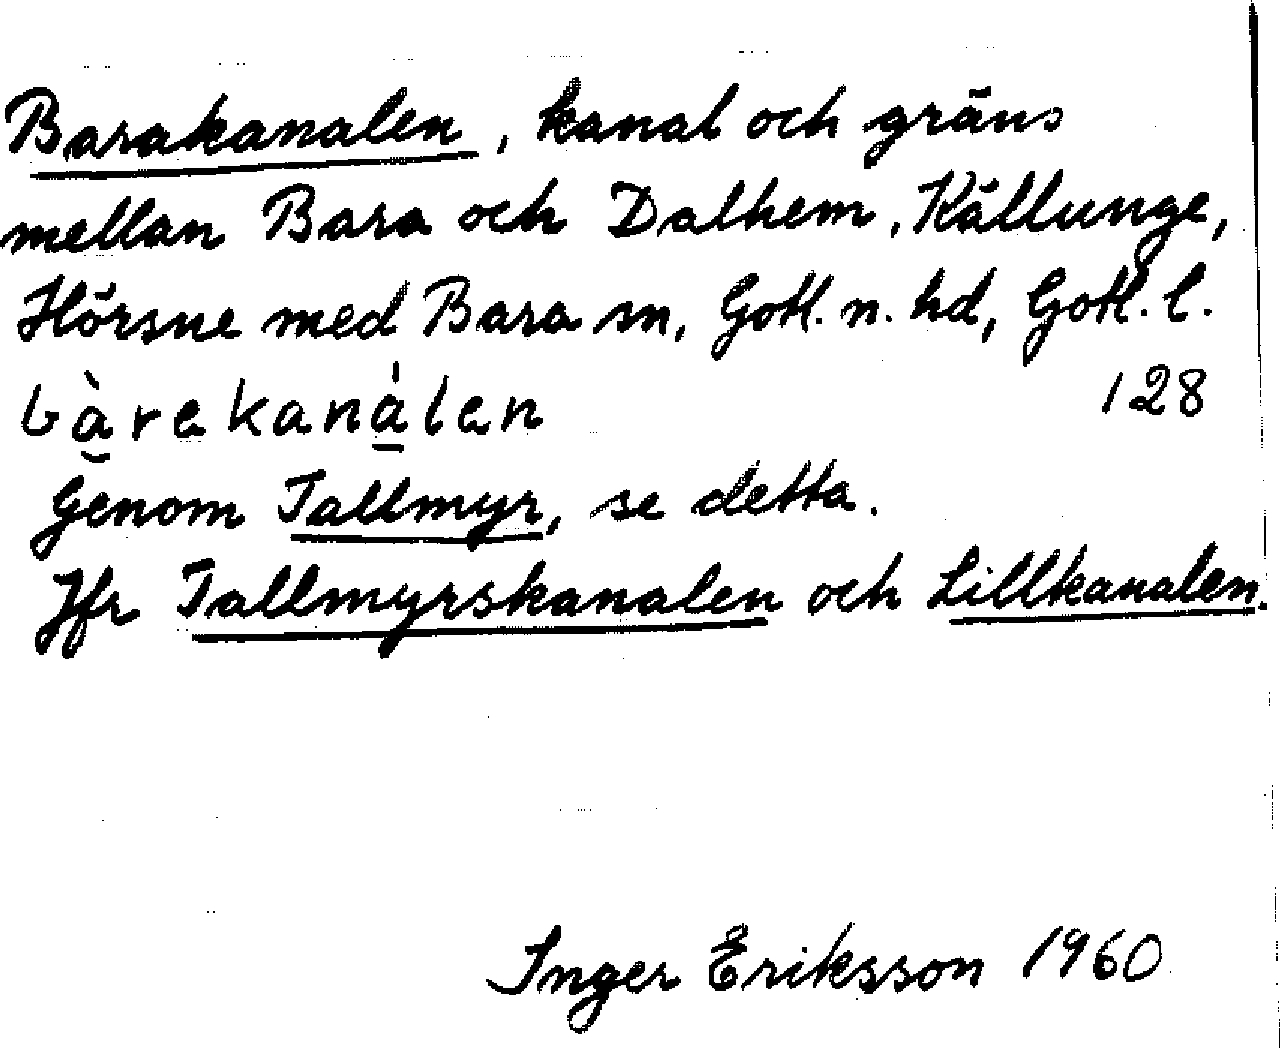 Barakanalen, kanal och gräns
mellan Bara och Dalhem, Källunge,
Hörsne med Bara sn, Gotl. n. hd, Gotl. l.
bà̱rekaná̱len 128
Genom Tallmyr, se detta.
Jfr Tallmyrskanalen och Lillkanalen.
Inger Eriksson 1960